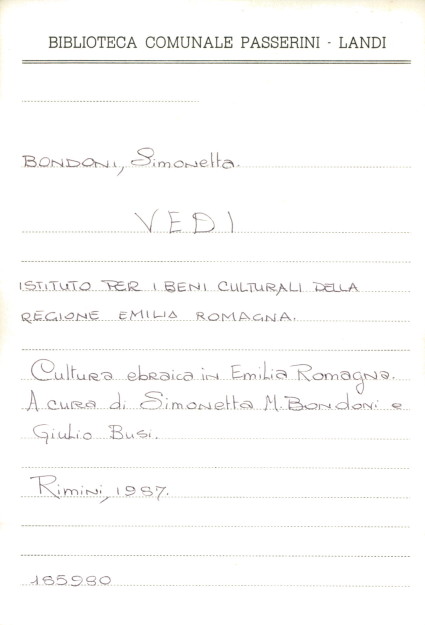 BIBLIOTECA COMUNALE PASSERINI - LANDI
BONDONI, Simonetta.
VEDI
ISTITUTO PER I BENI CULTURALI DELLA
REGIONE EMILIA ROMAGNA.
Cultura ebraica in Emilia Romagna.
A cura di Simonetta M. Bondoni e
Giulio Busi.
Rimini, 1987.
185980